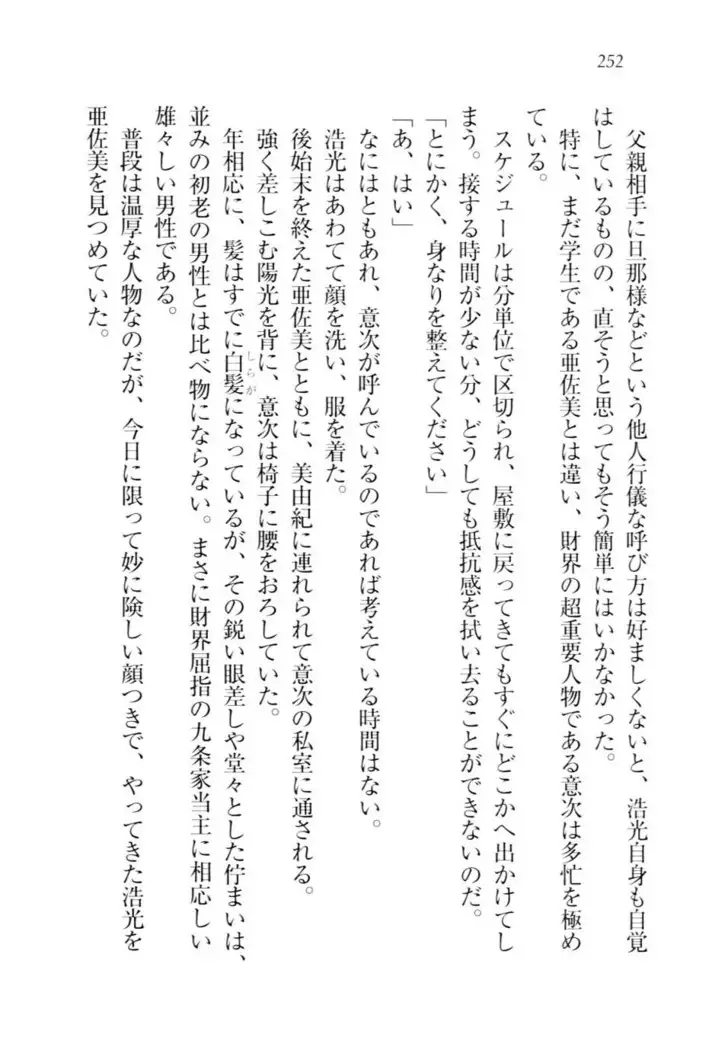 252
父親相手に旦那様などという他人行儀な呼び方は好ましくないと、浩光自身も自覚
はしているものの、直そうと思ってもそう簡単にはいかなかった。
特に、まだ学生である亜佐美とは違い、財界の超重要人物である意次は多忙を極め
ている。
スケジュールは分単位で区切られ、屋敷に戻ってきてもすぐにどこかへ出かけてし
まう。接する時間が少ない分、どうしても抵抗感を拭い去ることができないのだ。
「とにかく、身なりを整えてください」
「あ、はい」
なにはともあれ、意次が呼んでいるのであれば考えている時間はない。
浩光はあわてて顔を洗い、服を着た。
後始末を終えた亜佐美とともに、美由紀に連れられて意次の私室に通される。
強く差しこむ陽光を背に、意次は椅子に腰をおろしていた。
年相応に、髪はすでに白髪になっているが、その鋭い眼差しや堂々とした佇まいは、
しらが
並みの初老の男性とは比べ物にならない。まさに財界屈指の九条家当主に相応しい
雄々しい男性である。
普段は温厚な人物なのだが、今日に限って妙に険しい顔つきで、やってきた浩光を
亜佐美を見つめていた。